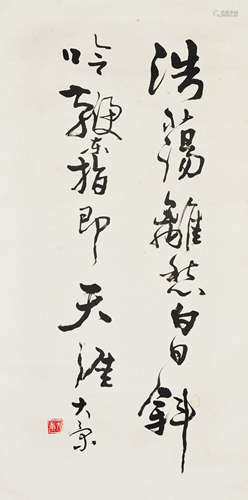 浩荡離愁白日斜
吟鞭東指即天涯 大康